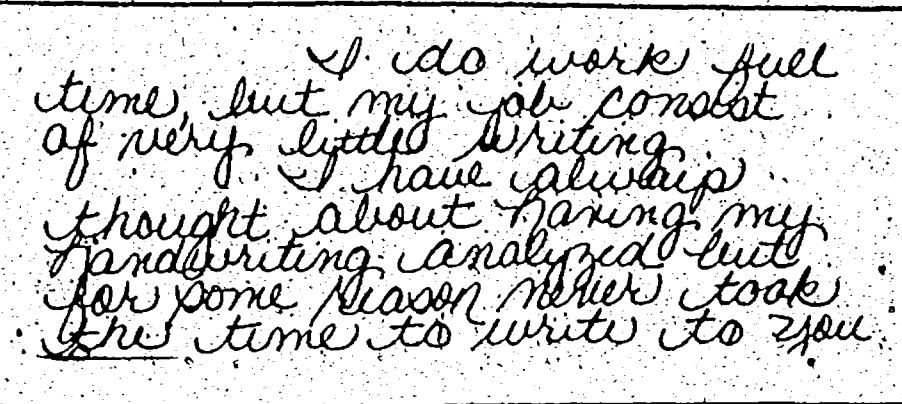 I do work full
time, but my job consist
of very little writing.
I have always
thought about having my
handwriting analyzed but
for some reason never took
the time to write to you.